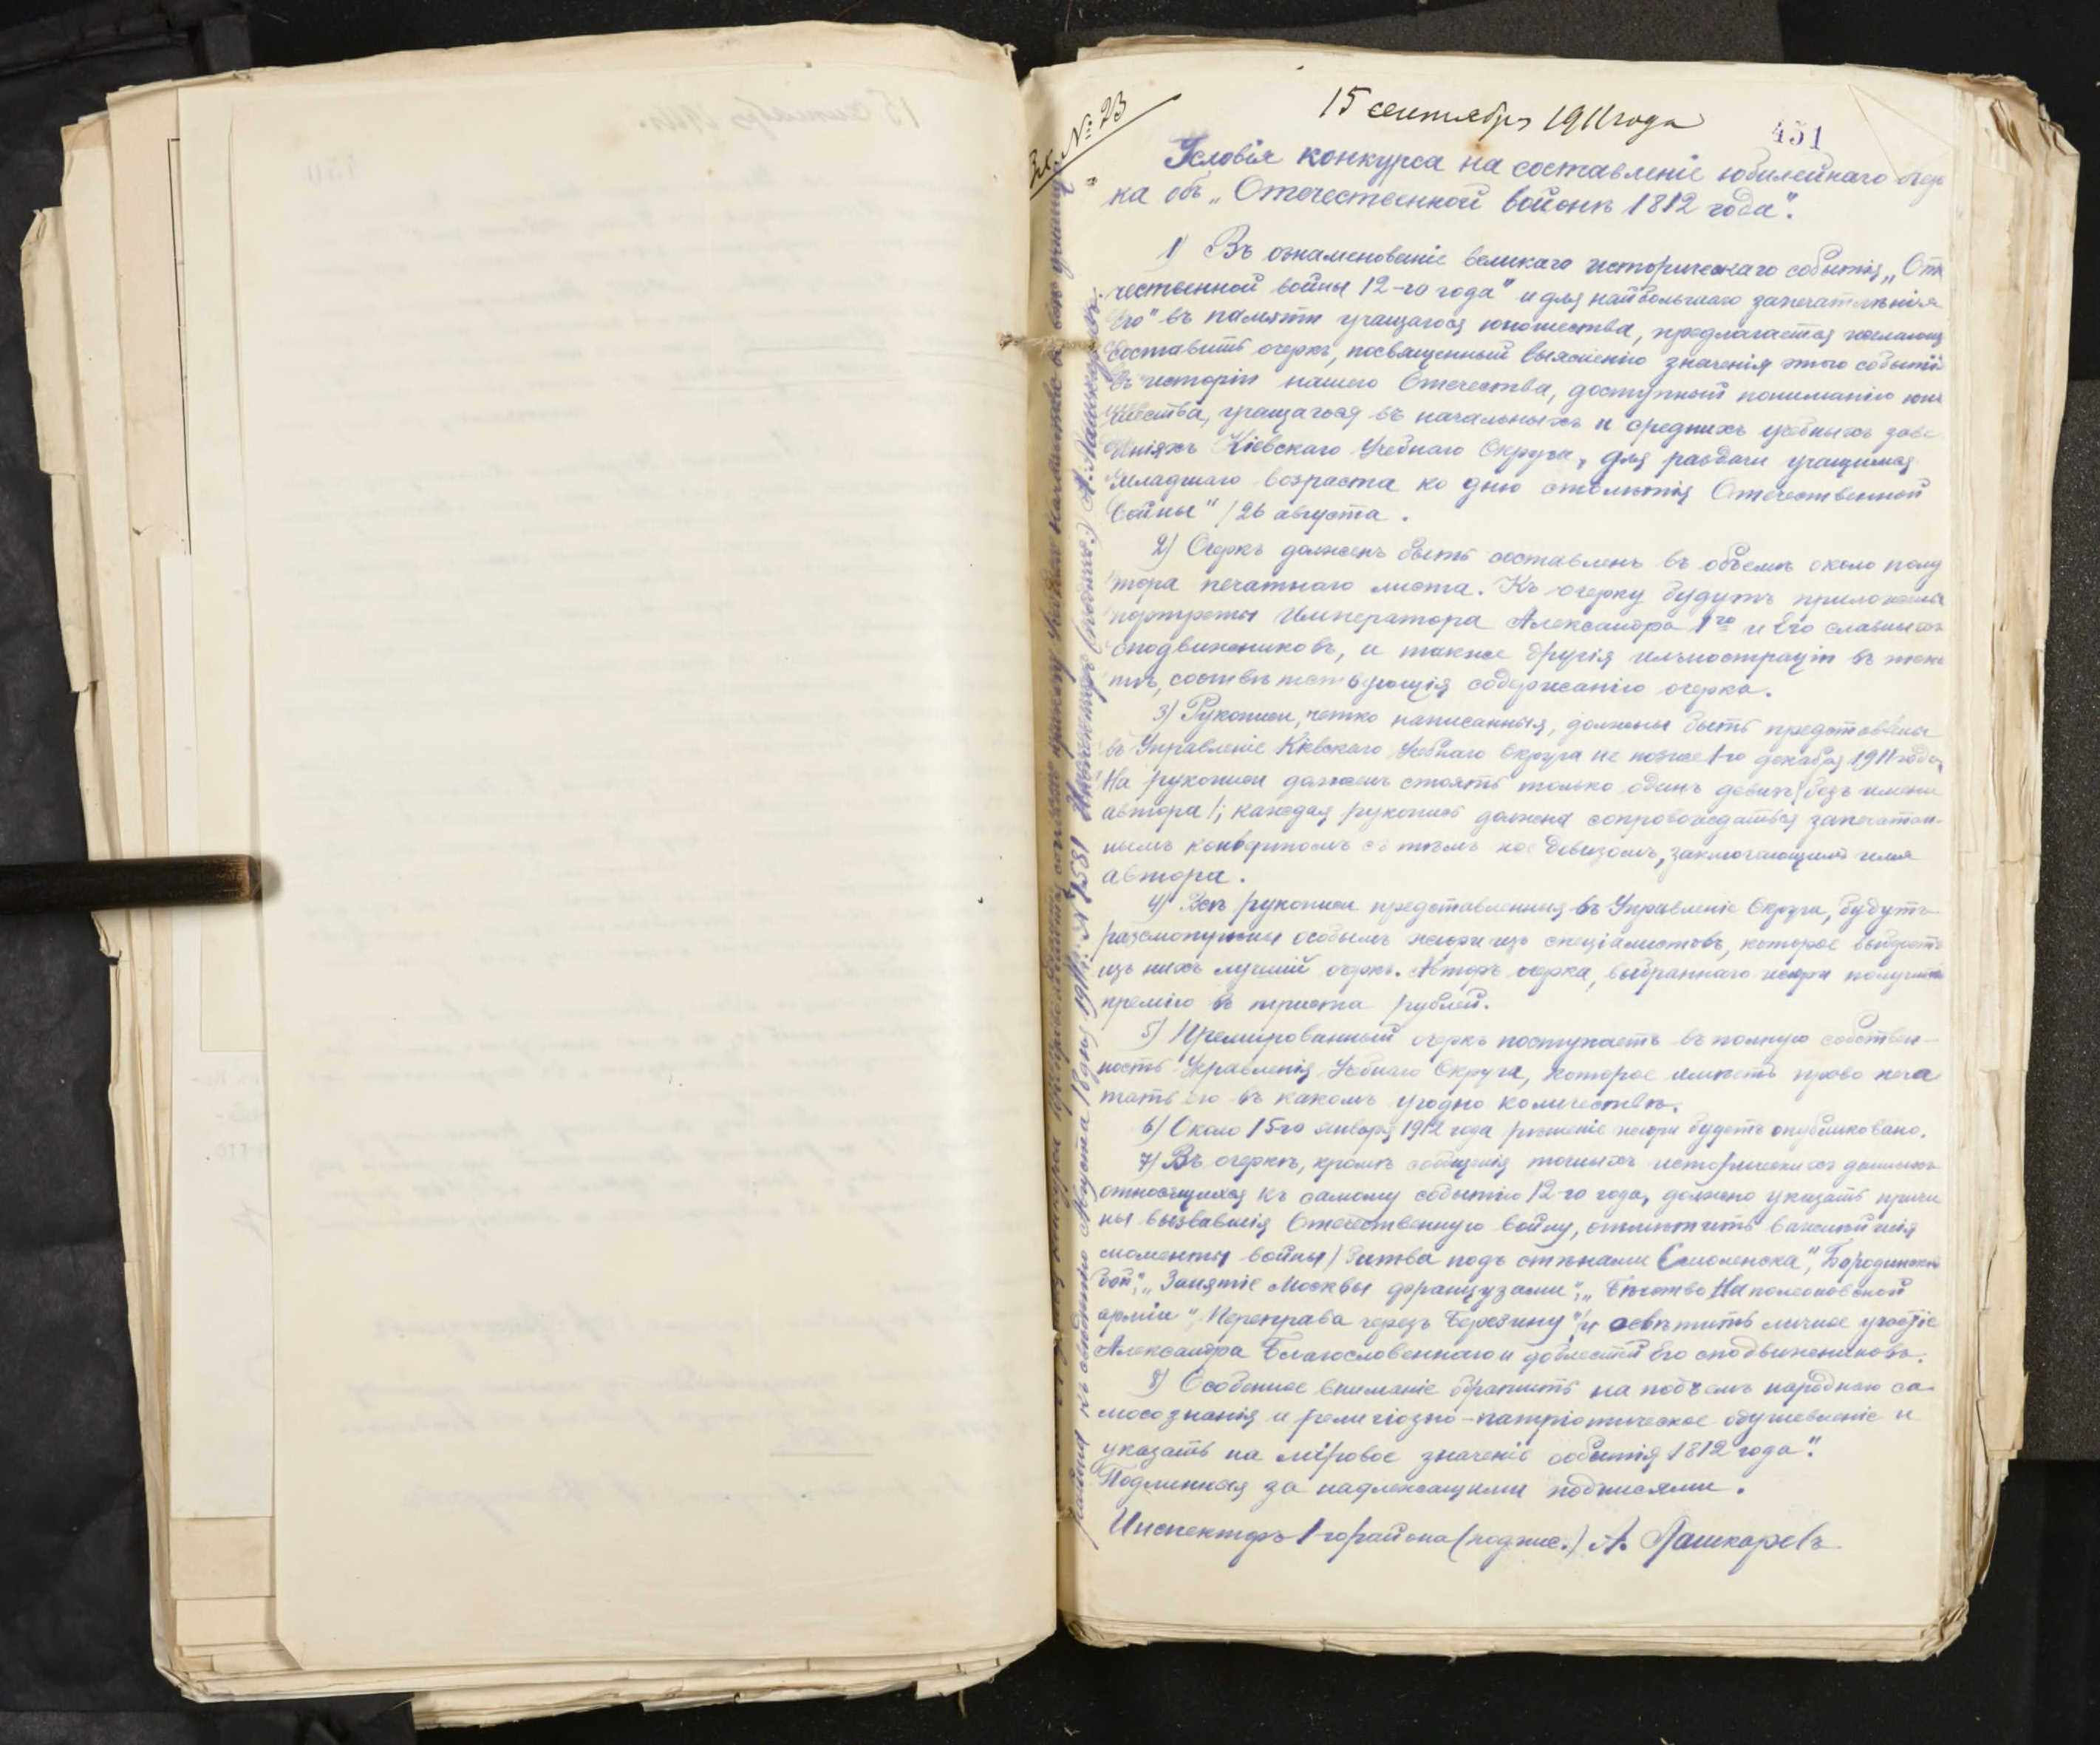 № 23
15 сентября 1911 года
451
Условія конкурса на составленіе юбилейнаго очер
ка объ „Отечественной войонѣ 1812 года".
1) Въ ознаменованіе великаго историческаго событія „Оте
чественной войны 12-го года" и для наибольшаго запечатлѣнія
его" въ памяти учащагося юношества, предлагается желающ
составить очеркъ, посвященный выясненію значенія этого событія
въ исторіи нашего Отечества, доступный пониманію юно
шества, учащагося въ начальныхъ и среднихъ учебныхъ заве
деніяхъ Кіевскаго Учебнаго Округа, для раздачи учащимся
младшаго возраста ко дню столѣтія Отечественной
войны" /26 августа.
2) Очеркъ долженъ быть составленъ въ объемѣ около полу
тора печатнаго листа. Къ очерку будутъ приложены
портреты Императора Александра 1го и Его славныхъ
сподвижниковъ, и также другія иллюстраціи въ текс
тѣ, соотвѣтствующія содержанію очерка.
3) Рукописи, четко написанныя, должны быть представлены
въ Управленіе Кіевскаго Учебнаго Округа не позже 1-го декабря 1911 года.
На рукописи долженъ стоять только одинъ девизъ /безъ имени
автора/; каждая рукопись должна сопровождаться запечатан-
нымъ конвертомъ съ тѣмъ же девизомъ, заключающимъ имя
автора.
4) Всѣ рукописи представленныя въ Управленіе Округа, будутъ
разсмотрены особымъ жюри изъ спеціалистовъ, которое выберетъ
изъ нихъ лучшій очеркъ. Авторъ очерка, выбраннаго жюри получитъ
премію въ триста рублей.
5) Премированный очеркъ поступаетъ въ полную собствен-
ность Управленія Учебнаго Округа, которое имѣетъ право печа
тать его въ какомъ угодно количествѣ.
6) Около 15го января 1912 года рѣшеніе жюри будетъ опубликовано.
7) Въ очеркѣ, кромѣ сообщенія точныхъ историческихъ данныхъ
относящихся къ самому событію 12-го года, должно указать причи
ны вызвавшія Отечественную войну, отмѣтить важнѣйшія
моменты войны /Битва подъ стѣнами Смоленска", Бородинскій
бой", „Занятіе Москвы французами", „Бѣгство Наполеоновской
арміи" „Переправа черезъ Березину"/ и освѣтить личное участіе
Александра Благословеннаго и доблестей Его сподвижниковъ.
8) Особенное вниманіе обратить на подъемъ народнаго са-
мосознанія и религіозно-патріотическое одушевленіе и
указать на міровое значеніе событія 1812 года".
Подлинная за надлежащими подписями.
Инспекторъ 1-го района (подпис.) А. Лашкаревъ
къ свѣдѣнію Августа 16 дня 1911 г. № 7581 Инспекторъ (подпис.) А. Лашкаревъ.